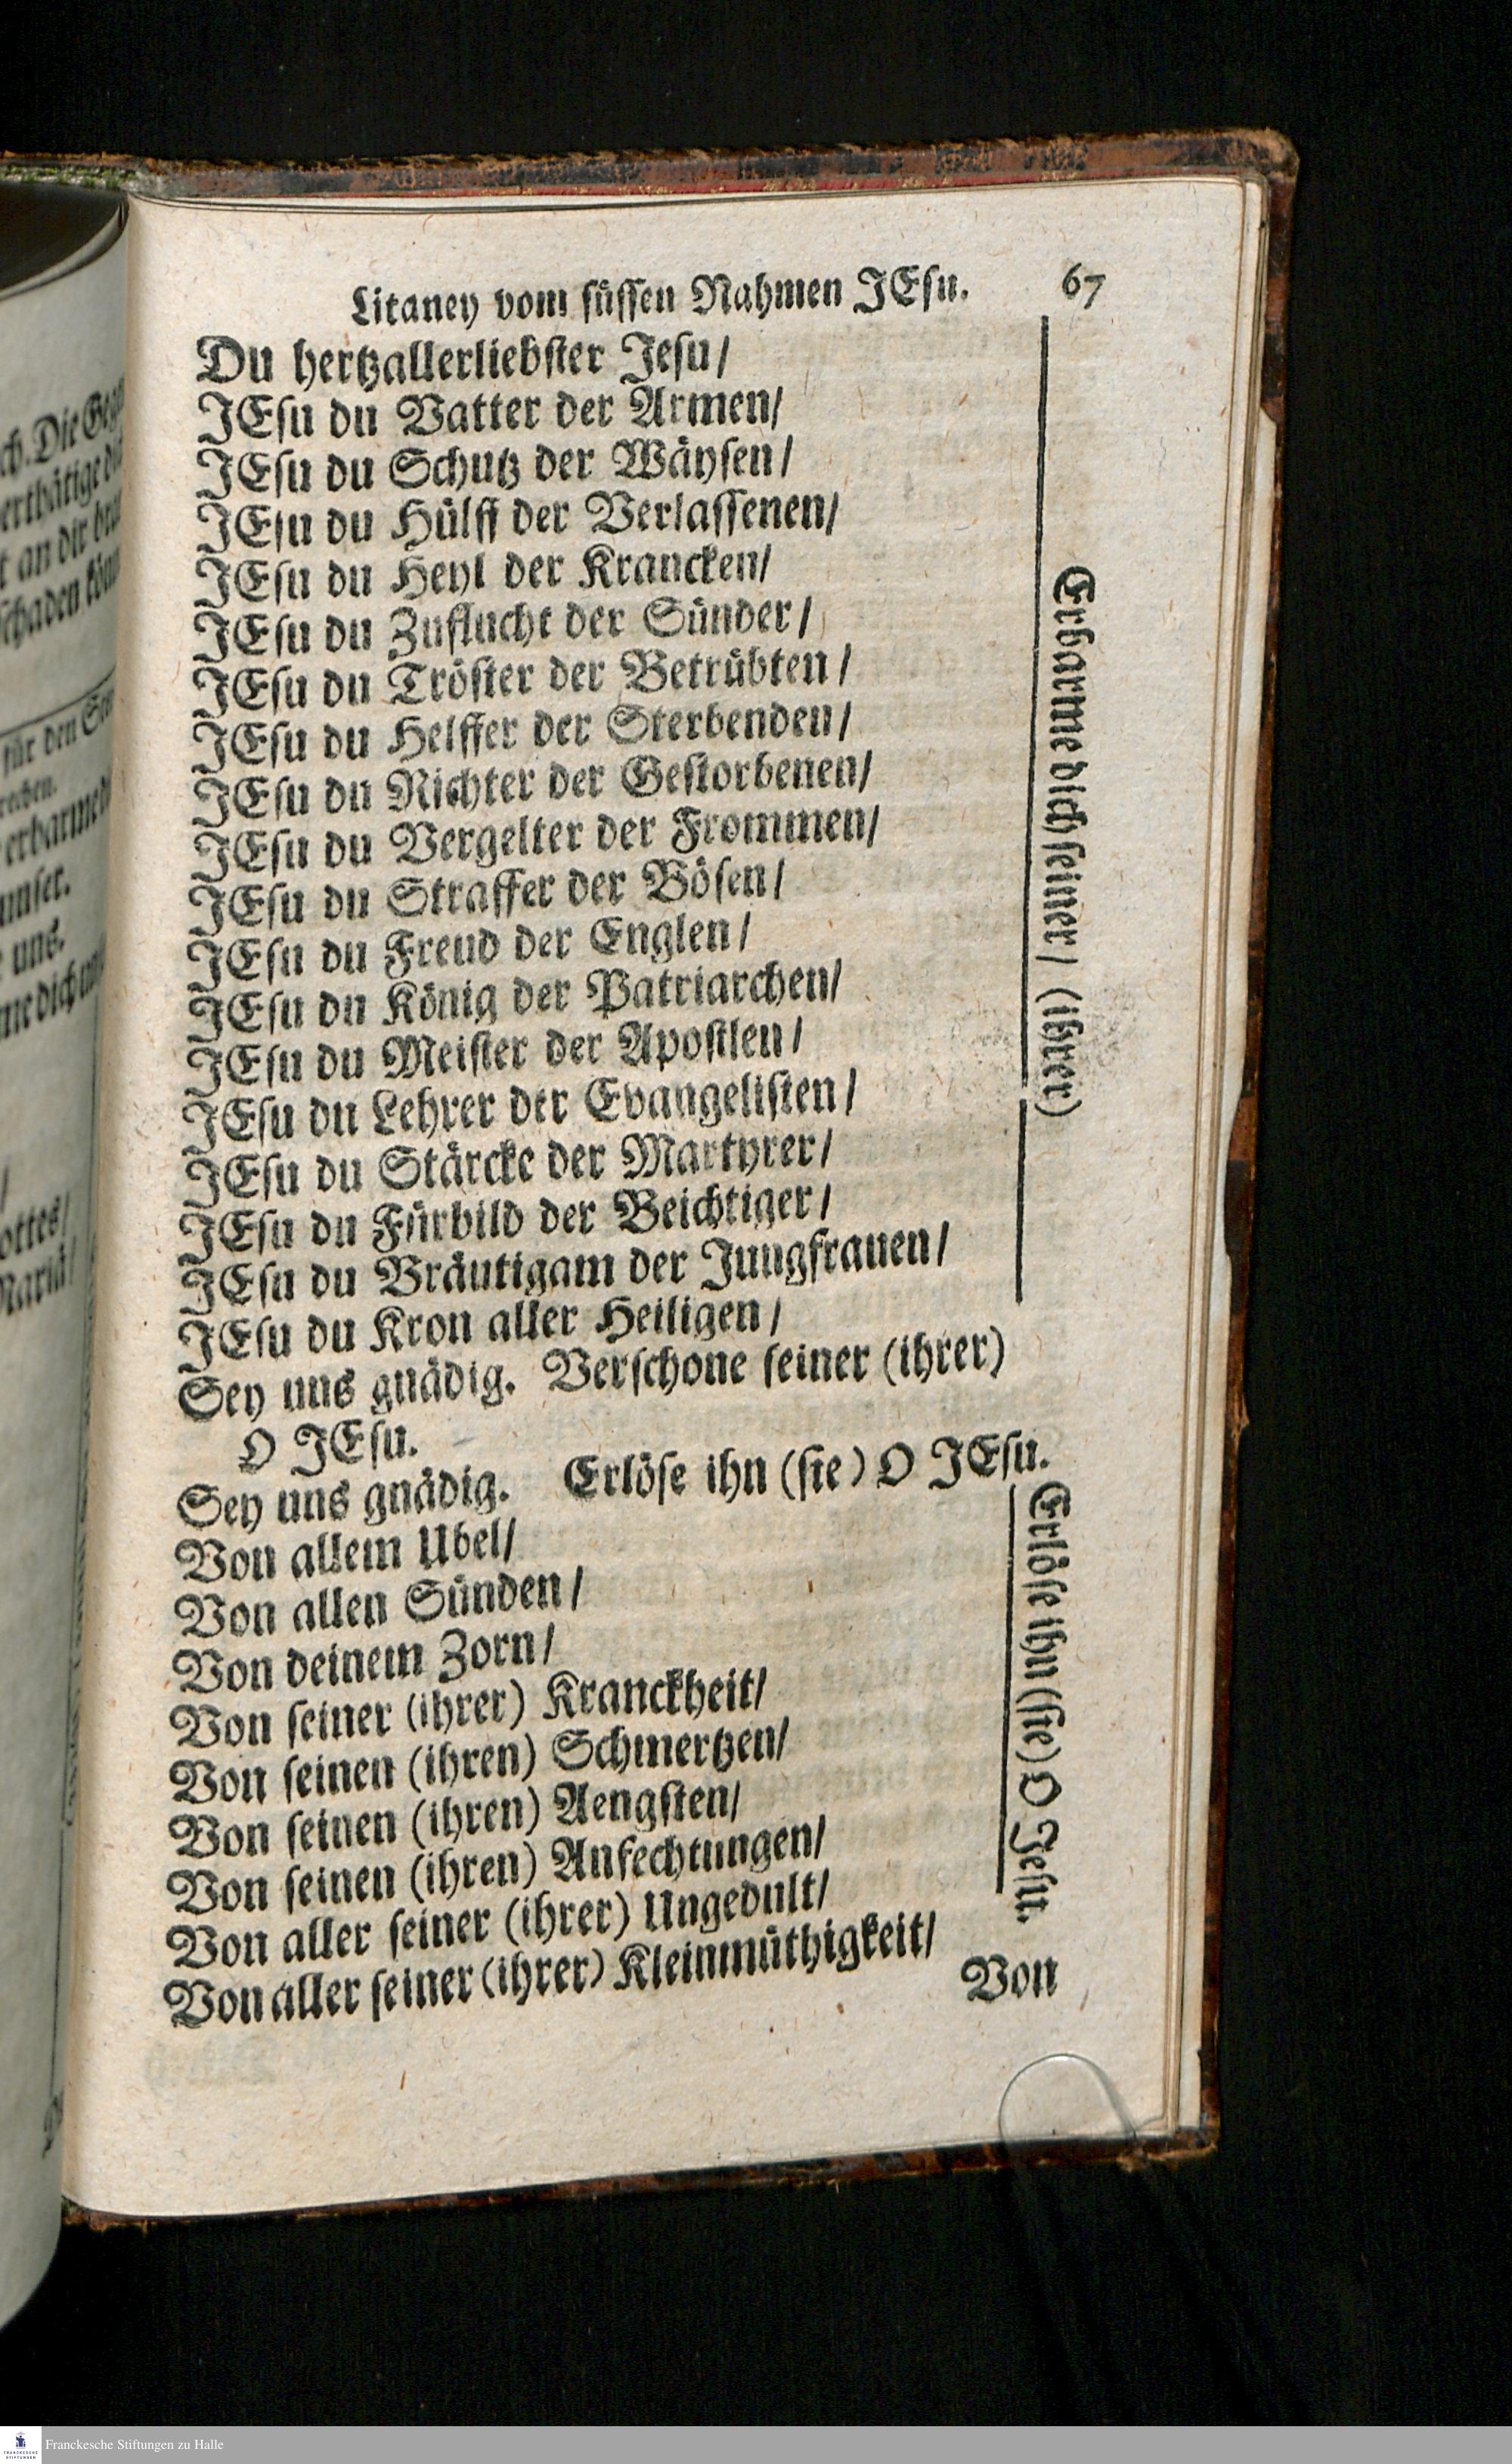 Litaney vom süssen Nahmen JEsu. 67
Du hertzallerliebster Jesu/
JEsu du Vatter der Armen/
JEsu du Schutz der Wäysen/
JEsu du Hülff der Verlassenen/
JEsu du Heyl der Krancken/
JEsu du Zuflucht der Sünder/
JEsu du Tröster der Betrübten/
JEsu du Helffer der Sterbenden/
JEsu du Richter der Gestorbenen/
JEsu du Vergelter der Frommen/
JEsu du Straffer der Bösen/
JEsu du Freud der Englen/
JEsu du König der Patriarchen/
JEsu du Meister der Apostlen/
JEsu du Lehrer der Evangelisten/
JEsu du Stärcke der Martyrer/
JEsu du Fürbild der Beichtiger/
JEsu du Bräutigam der Jungfrauen/
JEsu du Kron aller Heiligen/
Erbarme dich seiner/ (ihrer)
Sey uns gnädig. Verschone seiner (ihrer)
O JEsu.
Sey uns gnädig. Erlöse ihn (sie) O JEsu.
Von allem Ubel/
Von allen Sünden/
Von deinem Zorn/
Von seiner (ihrer) Kranckheit/
Von seinen (ihren) Schmertzen/
Von seinen (ihren) Aengsten/
Von seinen (ihren) Anfechtungen/
Von aller seiner (ihrer) Ungedult/
Von aller seiner (ihrer) Kleinmüthigkeit/
Erlöse ihn (sie) O Jesu.
Von
Franckesche Stiftungen zu Halle